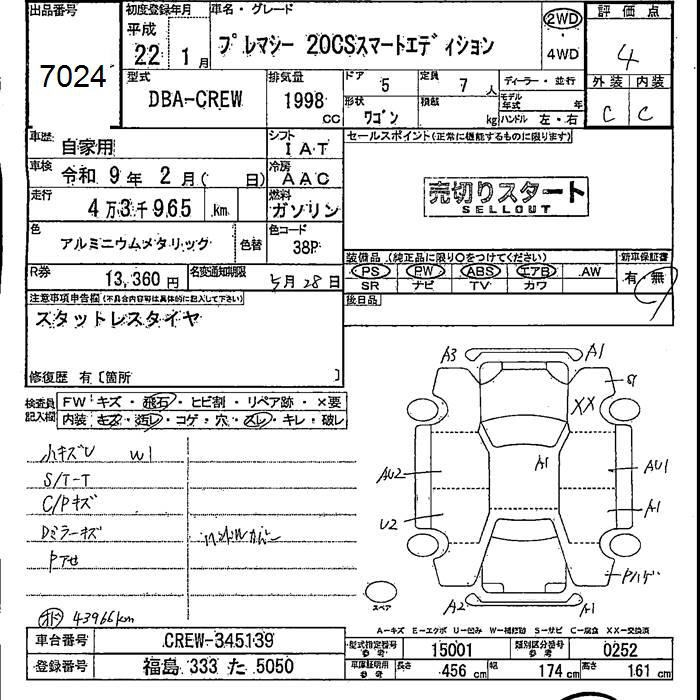 出品番号 初度登録年月 車名・グレード 2WD 評価点
7024 平成 22年 1月 プレマシー 20CSスマートエディション 4WD 4
型式 排気量 ドア 5 定員 7人 ディーラー・並行 外装 内装
DBA-CREW 1998 CC 形状 ワゴン 積載 kg モデル年式 年 C C
ハンドル 左・右
車歴 自家用 シフト IAT セールスポイント(正常に機能するものに限ります)
車検 令和 9年 2月( 日) 冷房 AAC
売切りスタート
SELLOUT
走行 4万3千965 km 燃料 ガソリン
色 アルミニウムメタリック 色替 色コード 38P
装備品 (純正品に限り○をつけてください) 新車保証書
PS PW ABS エアB AW 有・無
SR ナビ TV カワ
R券 13,360円 名変通知期限 5月28日
後日品
注意事項申告欄(不具合内容等は具体的に記入して下さい)
スタットレスタイヤ
修復歴 有〔箇所 〕
検査員記入欄 FW キズ・飛石・ヒビ割・リペア跡・×要
内装 キズ・汚レ・コゲ・穴・スレ・キレ・破レ
A3 A1
S1
XX
A1
AU2 AU1
U2 A1
Pハゲ
A2 A1
スペア
小キズU W1
S/T-T
C/Pキズ
Dミラーキズ
Pアせ
43966km
A-キズ E-エクボ U-凹み W-補修跡 S-サビ C-腐食 XX-交換済
車台番号 CREW-345139 型式指定番号 参考 15001 類別区分番号 参考 0252
登録番号 福島 333 た 5050 車庫証明用 参考 長さ 456 cm 幅 174 cm 高さ 161 cm